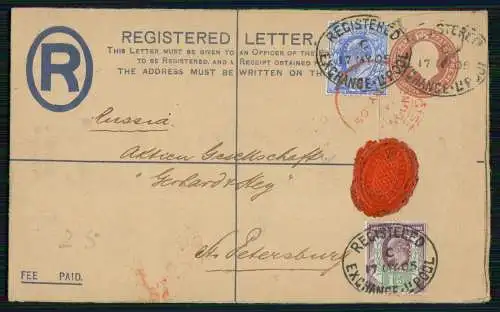 REGISTERED LETTER.
THIS LETTER MUST BE GIVEN TO AN OFFICER OF THE
TO BE REGISTERED, AND A RECEIPT OBTAINED
THE ADDRESS MUST BE WRITTEN ON THE
R
REGISTERED
C
17 MY 05
EXCHANGE. L'POOL
17 MY 05
EXCHANGE. L'POOL
Russia
Aktien Gesellschaft
"Gerhard & Hey"
St. Petersburg
25
FEE PAID.
REGISTERED
C
17 MY 05
EXCHANGE. L'POOL